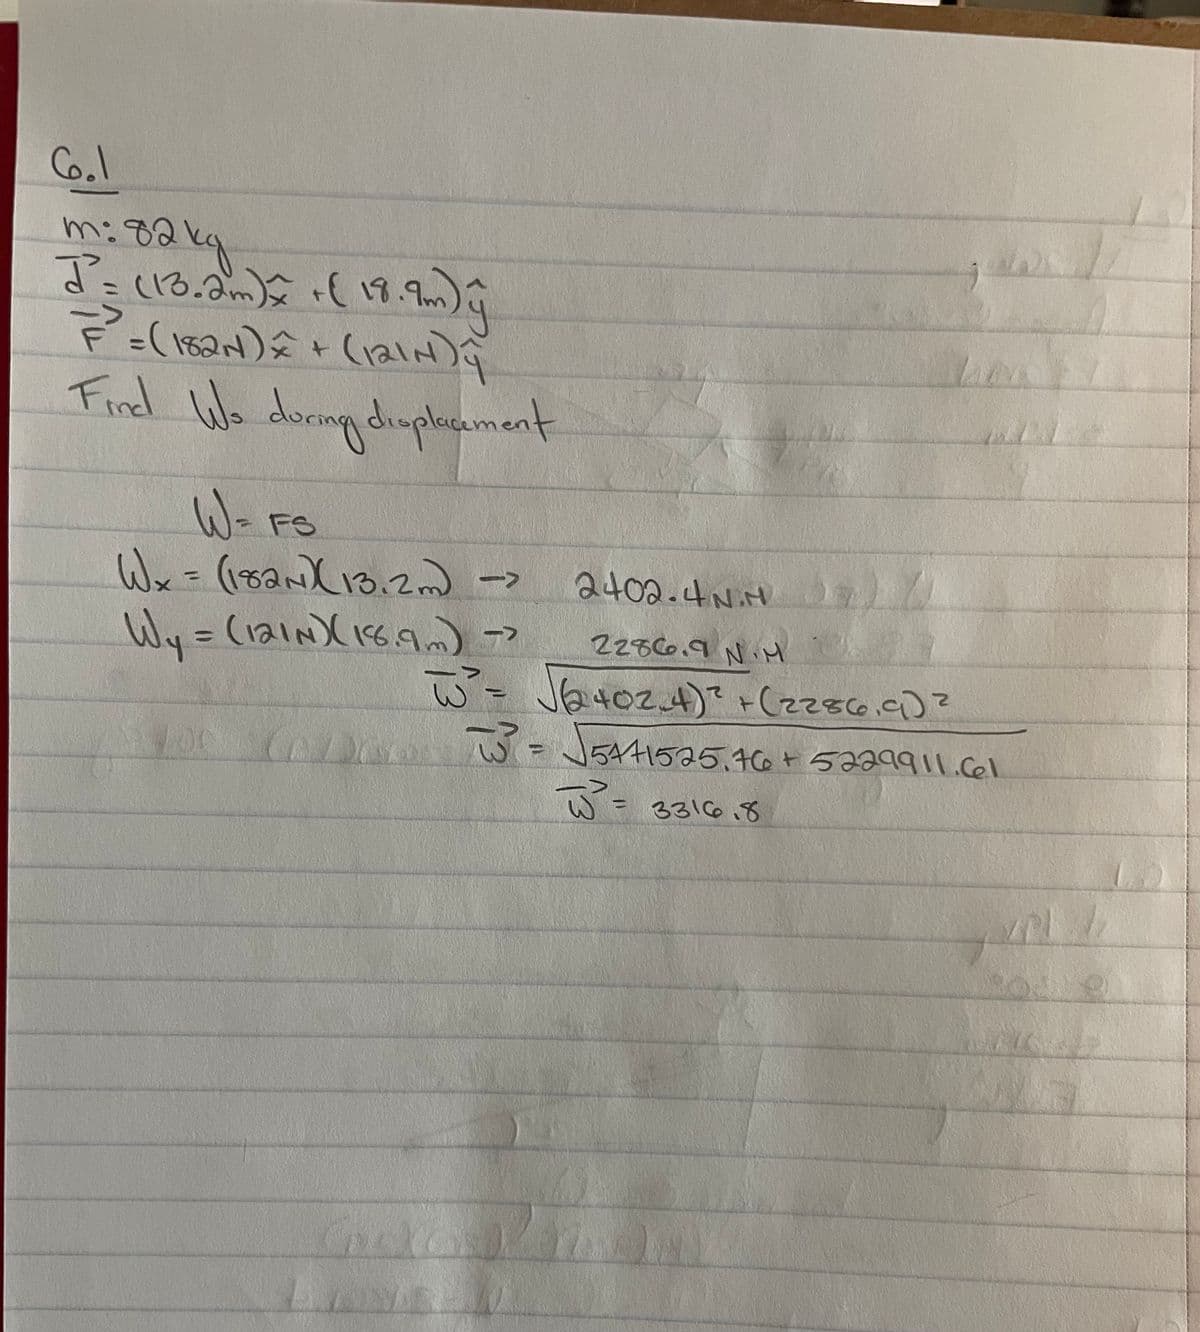 6.1
m: 82 kg
d⃗ = (13.2m)x̂ + (18.9m)ŷ
F⃗ = (182N)x̂ + (121N)ŷ
Find Ws during displacement
W = FS
Wx = (182N)(13.2m) -> 2402.4 N.M
Wy = (121N)(18.9m) -> 2286.9 N·M
W⃗ = √(2402.4)² + (2286.9)²
W⃗ = √5771525.76 + 5229911.61
W⃗ = 3316.8